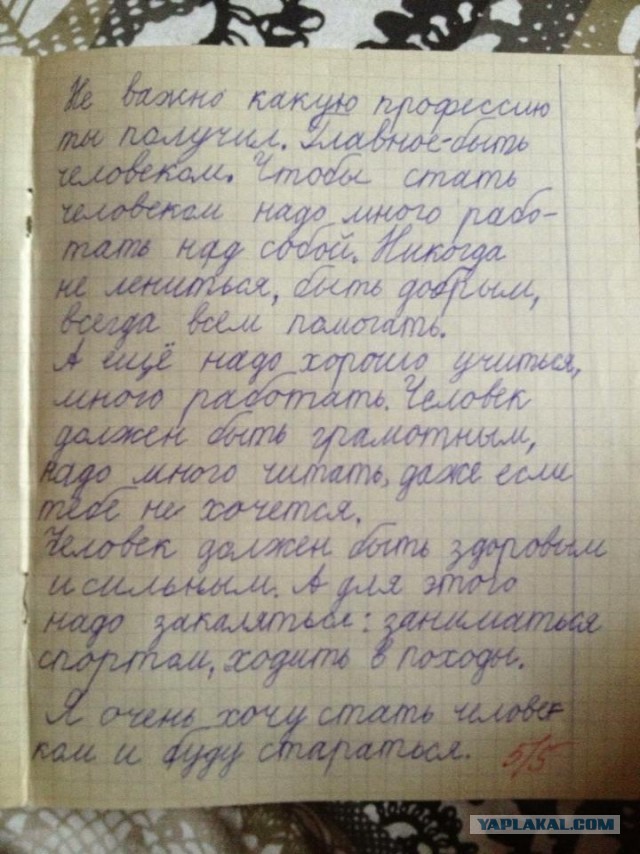 Не важно какую профессию
ты получил. Главное-быть
человеком. Чтобы стать
человеком надо много рабо-
тать над собой. Никогда
не лениться, быть добрым,
всегда всем помогать.
А ещё надо хорошо учиться,
много работать. Человек
должен быть грамотным,
надо много читать, даже если
тебе не хочется.
Человек должен быть здоровым
и сильным. А для этого
надо закаляться: заниматься
спортом, ходить в походы.
Я очень хочу стать челове-
ком и буду стараться. 5/5
YAPLAKAL.COM